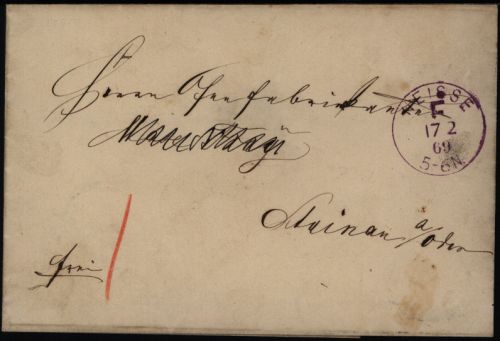 Herrn Ofenfabrikanten
NEISSE
F
17 2
69
5-6N.
Steinau a/Oder
frei